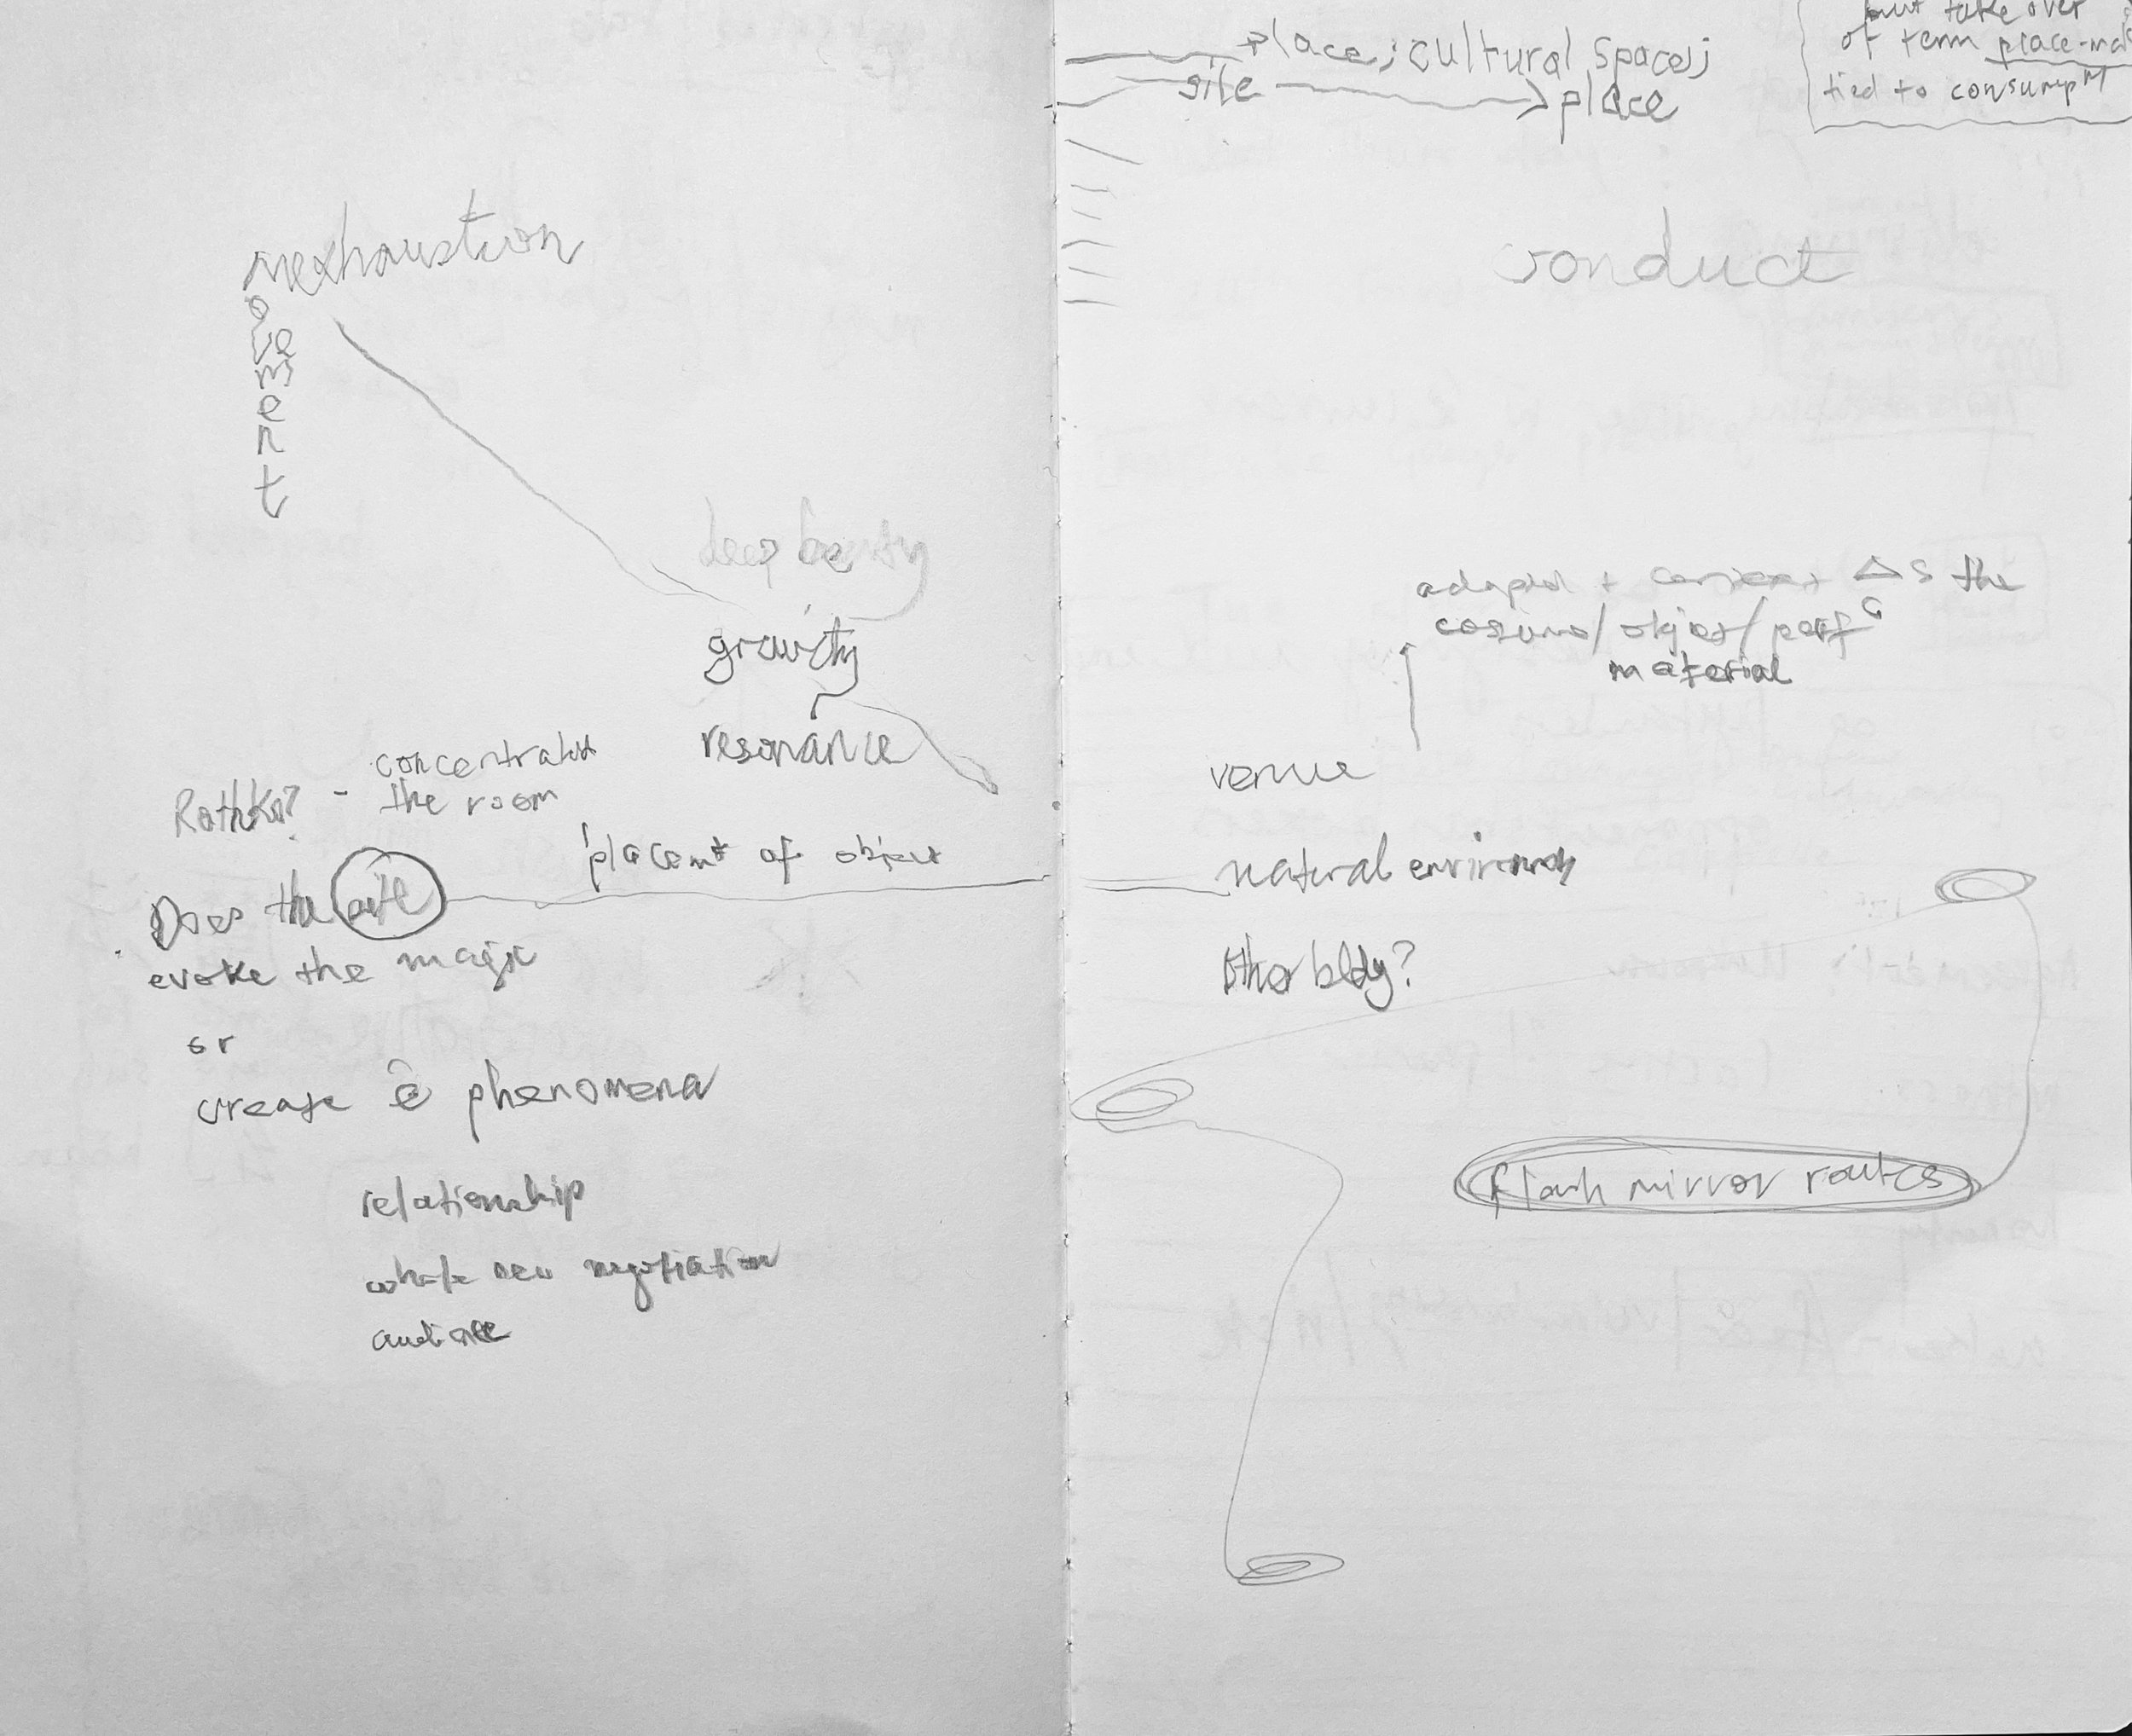 exhaustion
movement
deep beauty
gravity
resonance
concentrated
the room
Rothko? -
placemt of object
Does the site
evoke the magic
or
create ê phenomena
relationship
whole new negotiation
audience
place; cultural space;
site → place
but take over
of term place-ma
tied to consumpⁿ
conduct
adapted + context Δs the
costume/object/perf
material
venue
natural environ
other bldg?
flash mirror routes